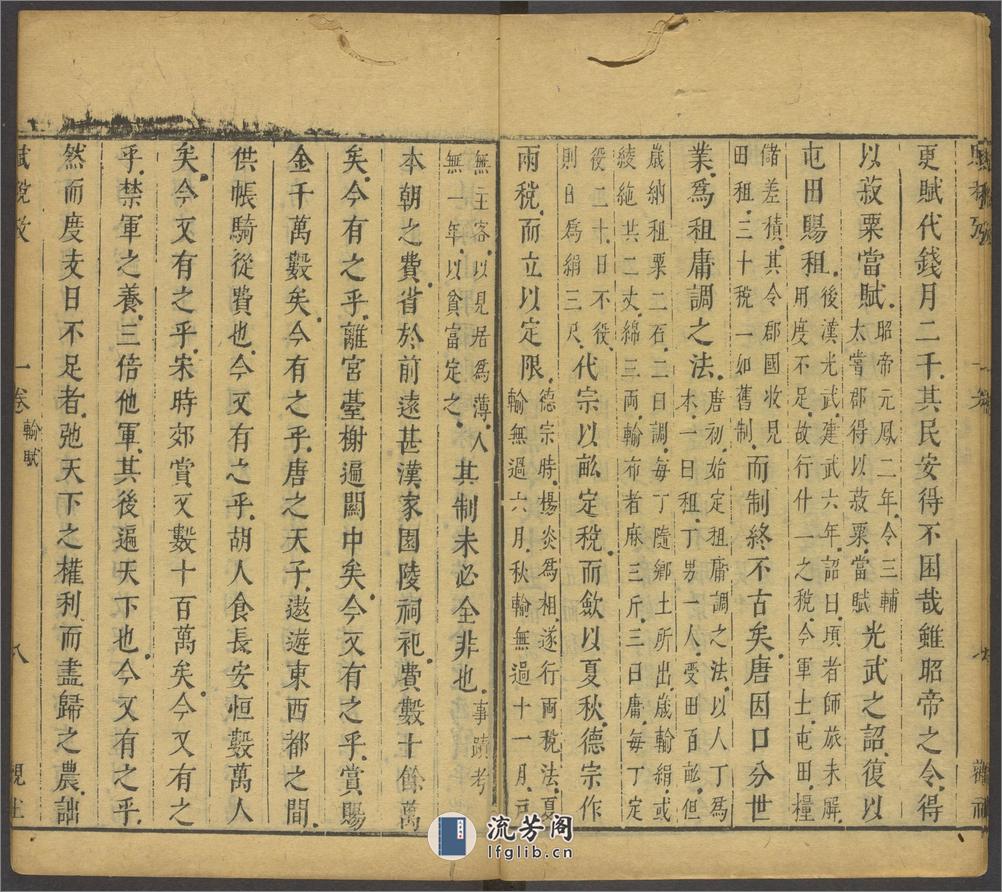 更賦代錢月二千其民安得不困哉雖昭帝之令得
以菽粟當賦昭帝元鳳二年令三輔太常郡得以菽粟當賦光武之詔復以
屯田賜租後漢光武建武六年詔曰頃者師旅未解用度不足故行什一之稅今軍士屯田糧
儲差積其令郡國收見田租三十稅一如舊制而制終不古矣唐因口分世
業爲租庸調之法唐初始定租庸調之法以人丁爲本一曰租丁男一人受田百畝但
歲納租粟二石二曰調每丁隨鄉土所出歲輸絹或綾絁共二丈綿三兩輸布者麻三斤三曰庸每丁定
役二十日不役則日爲絹三尺代宗以畝定稅而歛以夏秋德宗作
兩稅而立以定限德宗時楊炎爲相遂行兩稅法夏輸無過六月秋輸無過十一月戸
無主客以見居爲薄人無一年以貧富定之其制未必全非也事蹟考
本朝之費省於前遠甚漢家園陵祠祀費數十餘萬
矣今有之乎離宮臺榭遍關中矣今又有之乎賞賜
金千萬數矣今有之乎唐之天子遨遊東西都之間
供帳騎從費也今又有之乎胡人食長安恒數萬人
矣今又有之乎宋時郊賞又數十百萬矣今又有之
乎禁軍之養三倍他軍其後遍天下也今又有之乎
然而度支日不足者弛天下之權利而盡歸之農詘
賦稅攷 一卷 輸賦 八
流芳阁
lfglib.cn